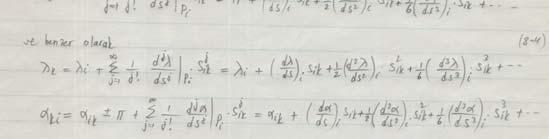 j=1 j! ds^j |P_i ds)_i ^S_ik + 1/2 (ds²)_i ^S_ik + 1/6 (ds³)_i + ...
ve benzer olarak (8-4)
λ_k = λ_i + Σ_{j=1}^∞ 1/j! d^jλ/ds^j |_{P_i} S_ik^j = λ_i + (dλ/ds)_i S_ik + 1/2 (d²λ/ds²)_i S_ik^2 + 1/6 (d³λ/ds³)_i S_ik^3 + ...
α_ki = α_ik ± π + Σ_{j=1}^∞ 1/j! d^jα/ds^j |_{P_i} S_ik^j = α_ik + (dα/ds)_i S_ik + 1/2 (d²α/ds²)_i S_ik^2 + 1/6 (d³α/ds³)_i S_ik^3 + ...